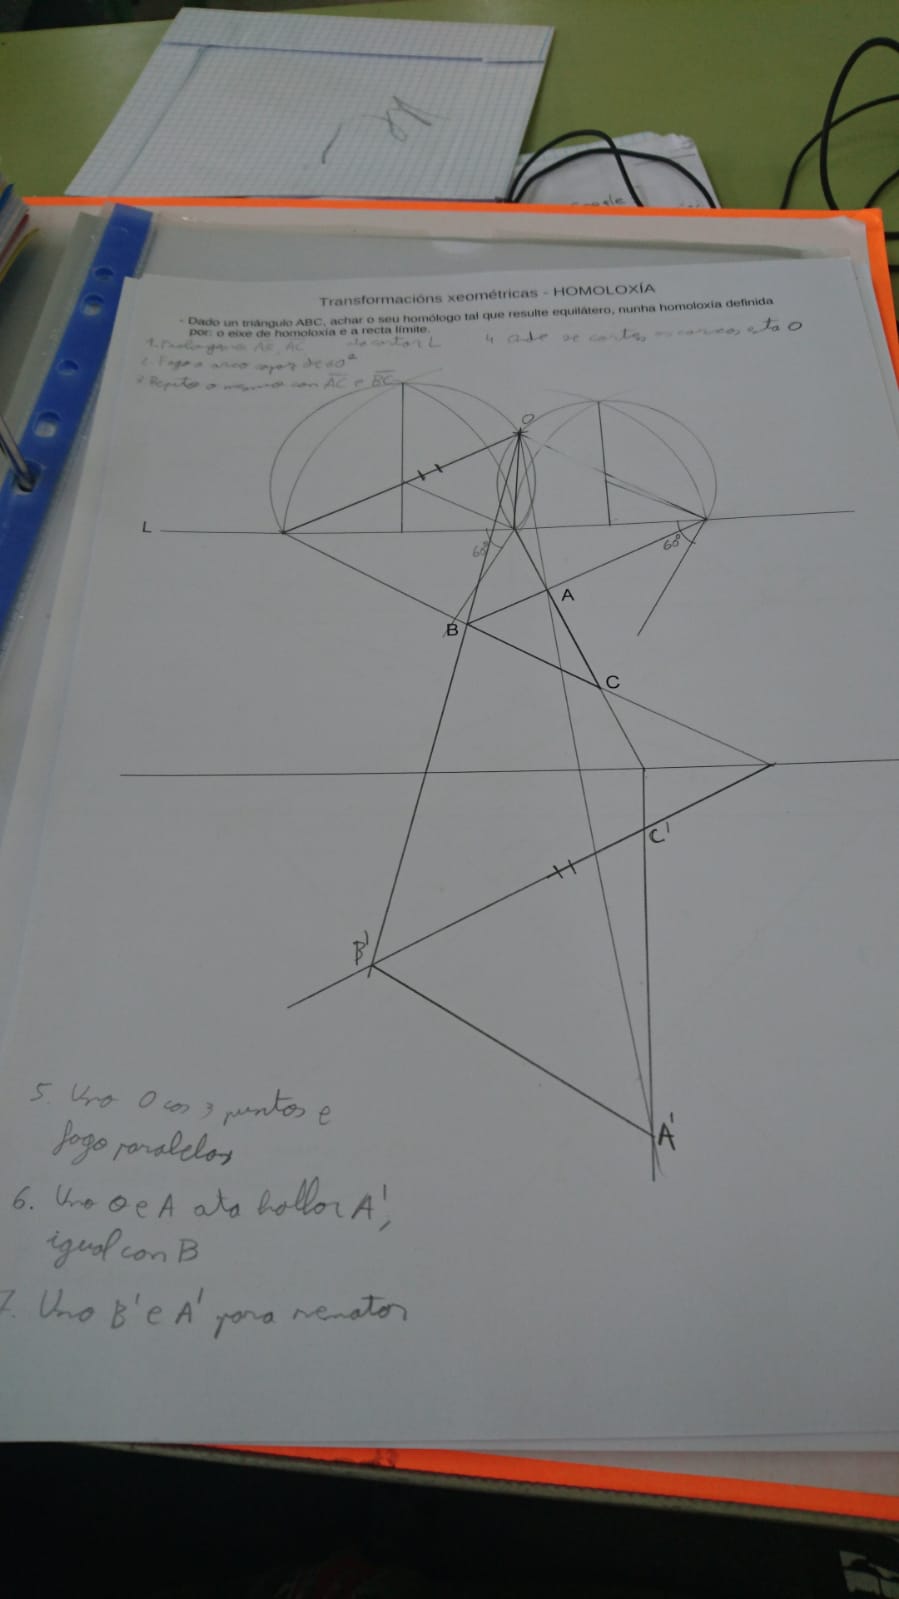 Transformacións xeométricas - HOMOLOXÍA
- Dado un triángulo ABC, achar o seu homólogo tal que resulte equilátero, nunha homoloxía definida
por: o eixe de homoloxía e a recta límite.
1. AB, AC L
2. Fago o arco capaz de 60º
3. Repito o mesmo con AC e BC
4 onde se cortan os arcos esta O
O
L
60º
60º
A
B
C
C'
B'
A'
5. Uno O cos 3 puntos e
fago paralelas
6. Uno O e A ata hallar A',
igual con B
7. Uno B' e A' para rematar